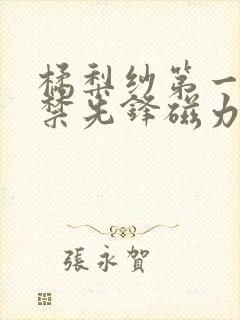 橘梨纱第一
禁先锋磁力
張永賀